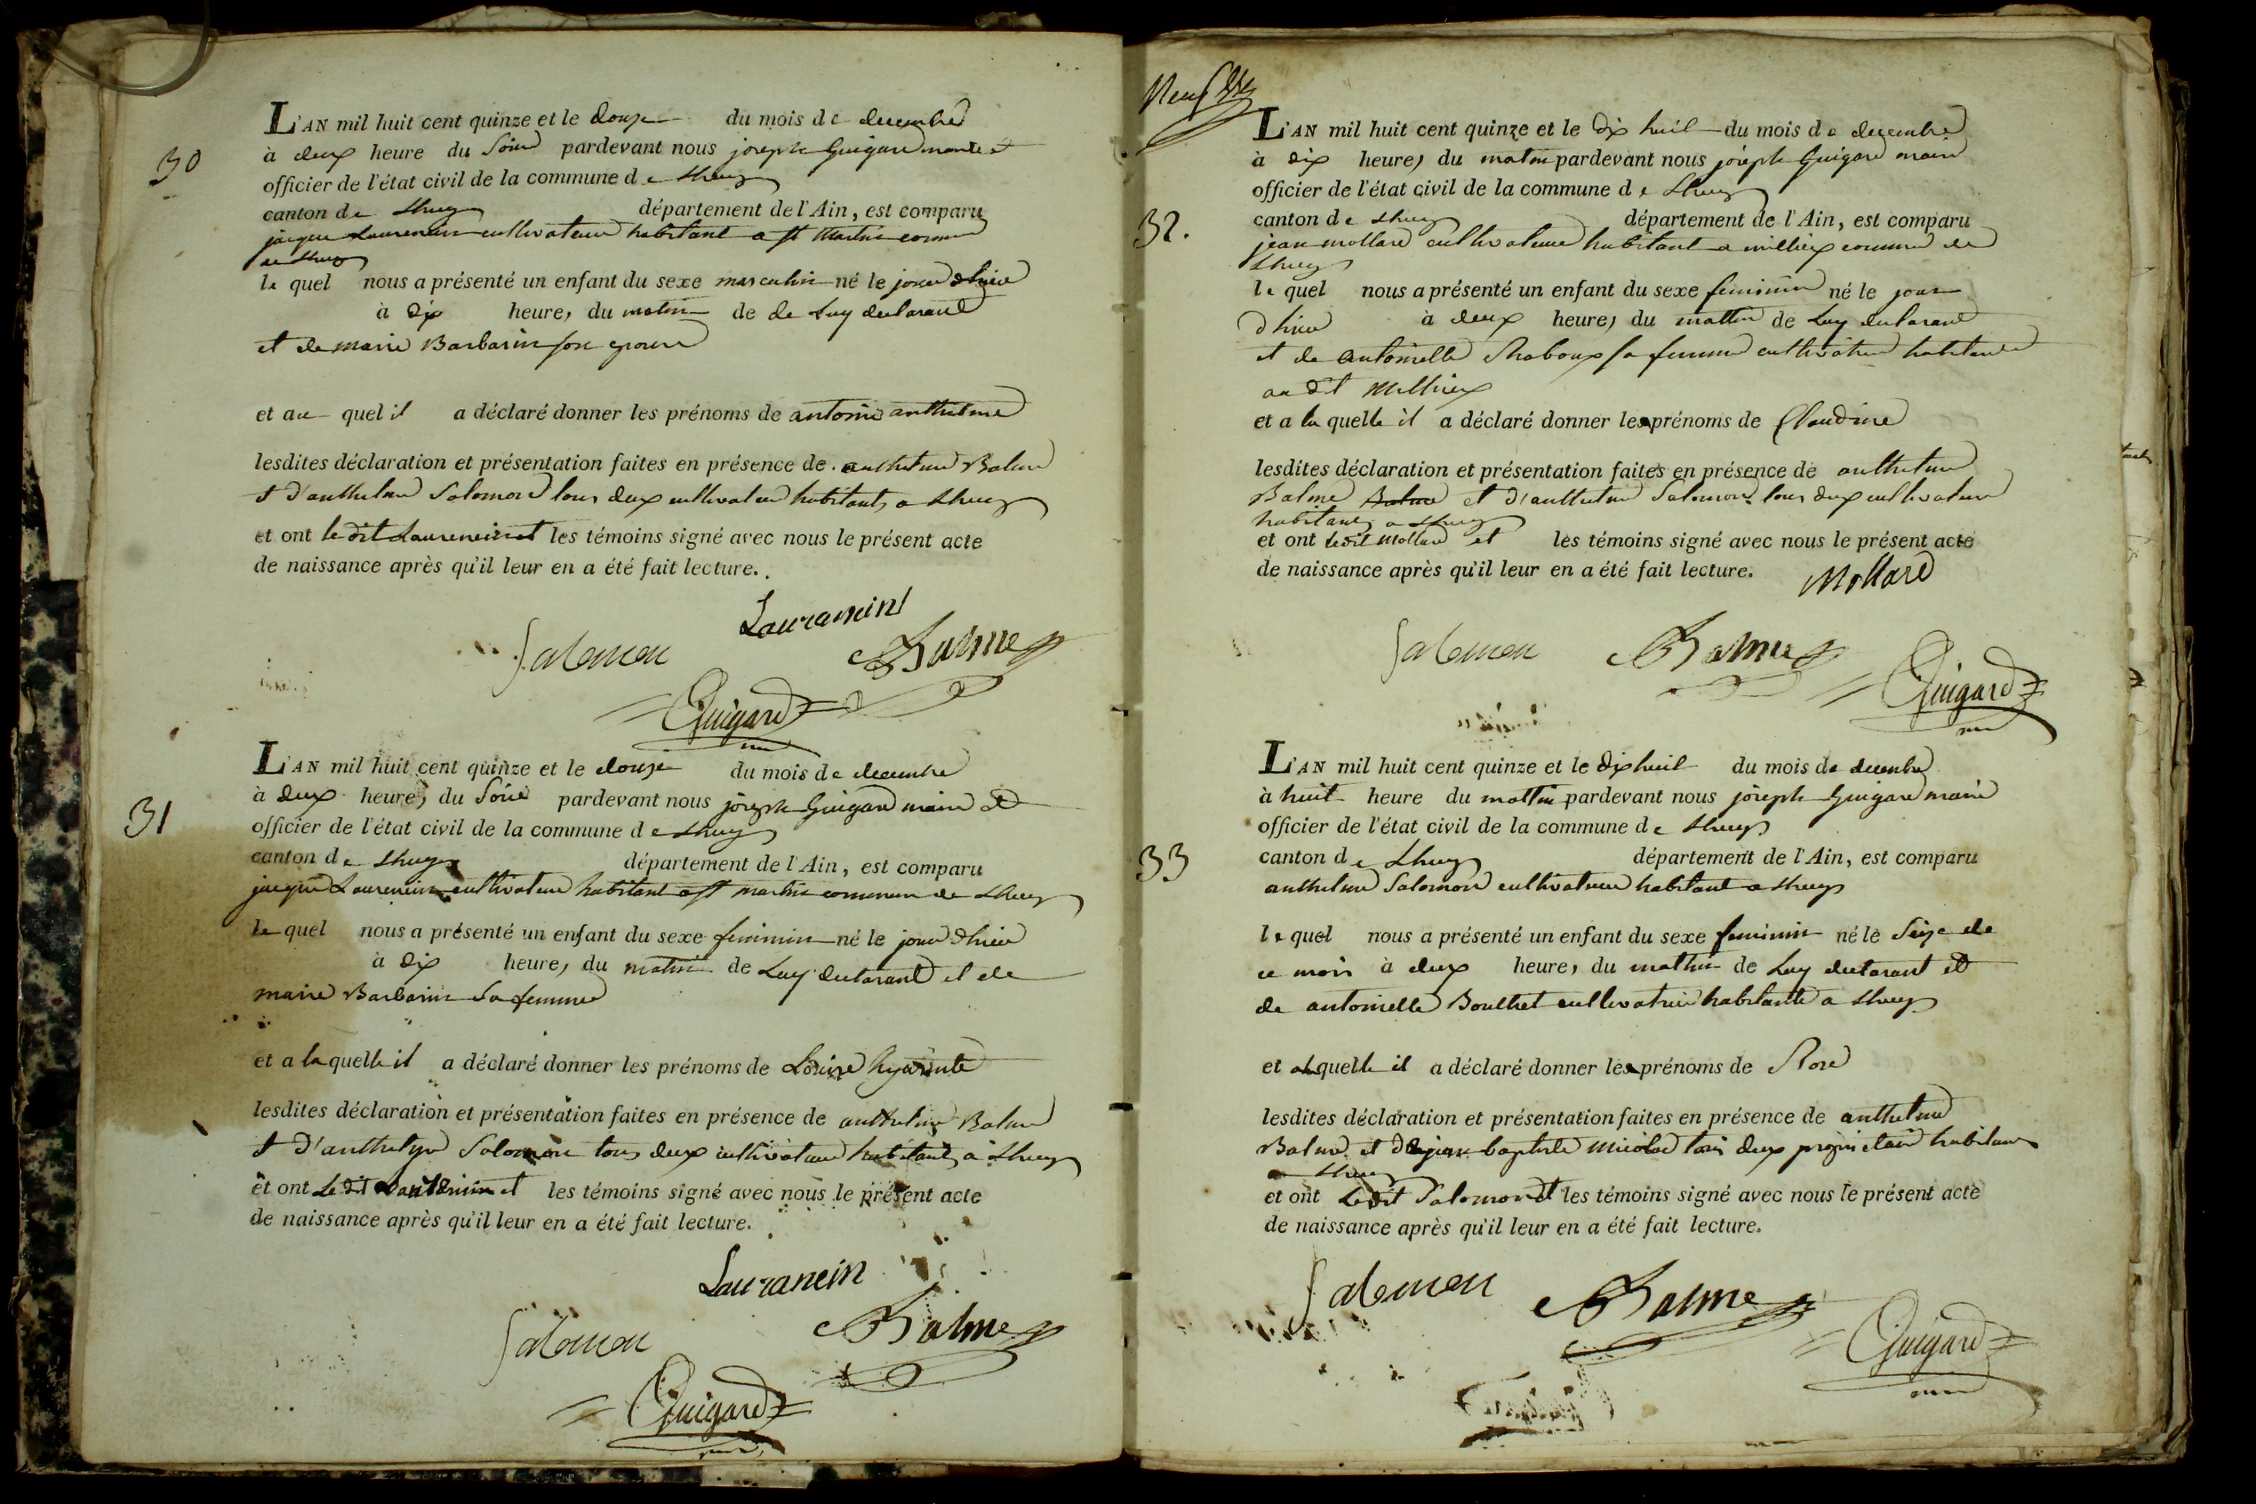 30
L'AN mil huit cent quinze et le douze du mois de decembre
à deux heure du Soir pardevant nous joseph Guigard maire et
officier de l'état civil de la commune de Lhuys
canton de Lhuys département de l'Ain, est comparu
jacque Laurencin cultivateur habitant a st Martin commune
de Lhuys
le quel nous a présenté un enfant du sexe masculin né le jour dhier
à dix heures du matin de de Luy declarant
et de marie Barbarin son epouse
et au quel il a déclaré donner les prénoms de antoine anthelme
lesdites déclaration et présentation faites en présence de anthelme Balme
et d'anthelme Salomon tous deux cultivateur habitants a Lhuys
et ont le dit Laurencin et les témoins signé avec nous le présent acte
de naissance après qu'il leur en a été fait lecture.
Laurancin
Salomon Balme
Guigard
31
L'AN mil huit cent quinze et le douze du mois de decembre
à deux heures du Soir pardevant nous joseph Guigard maire et
officier de l'état civil de la commune de Lhuys
canton de Lhuys département de l'Ain, est comparu
jacque Laurencin cultivateur habitant a st martin commune de Lhuys
le quel nous a présenté un enfant du sexe feminin né le jour dhier
à dix heures du matin de Luy declarant et de
marie Barbarin sa femme
et a la quelle il a déclaré donner les prénoms de Louise hyacinte
lesdites déclaration et présentation faites en présence de anthelme Balme
et d'anthelme Salomon tous deux cultivateur habitants a Lhuys
et ont le dit Laurencin et les témoins signé avec nous le présent acte
de naissance après qu'il leur en a été fait lecture.
Laurancin
Salomon Balme
Guigard
Neuf
32.
L'AN mil huit cent quinze et le dix huit du mois de decembre
à dix heures du matin pardevant nous joseph Guigard maire
officier de l'état civil de la commune de Lhuys
canton de Lhuys département de l'Ain, est comparu
jean mollard cultivateur habitant a millieux commune de
Lhuys
le quel nous a présenté un enfant du sexe feminin né le jour
d'hier à deux heures du mattin de Luy declarant
et de antoinette Raboux sa femme cultivatrice habitante
au dit Millieux
et a la quelle il a déclaré donner les prénoms de Claudine
lesdites déclaration et présentation faites en présence de anthelme
Balme Balme et d'anthelme Salomon tous deux cultivateur
habitants a Lhuys
et ont ledit Mollard et les témoins signé avec nous le présent acte
de naissance après qu'il leur en a été fait lecture.
Mollard
Salomon Balme
Guigard
33
L'AN mil huit cent quinze et le dix huit du mois de decembre
à huit heure du mattin pardevant nous joseph Guigard maire
officier de l'état civil de la commune de Lhuys
canton de Lhuys département de l'Ain, est comparu
anthelme Salomon cultivateur habitant a Lhuys
le quel nous a présenté un enfant du sexe feminin né le Seize de
ce mois à deux heures du mattin de Luy declarant et
de antoinette Bouthet cultivatrice habitante a Lhuys
et a la quelle il a déclaré donner les prénoms de Rose
lesdites déclaration et présentation faites en présence de anthelme
Balme et de jean baptiste Micolod tous deux proprietaire habitans
a Lhuys
et ont Ledit Salomon et les témoins signé avec nous le présent acte
de naissance après qu'il leur en a été fait lecture.
Salomon Balme
Guigard